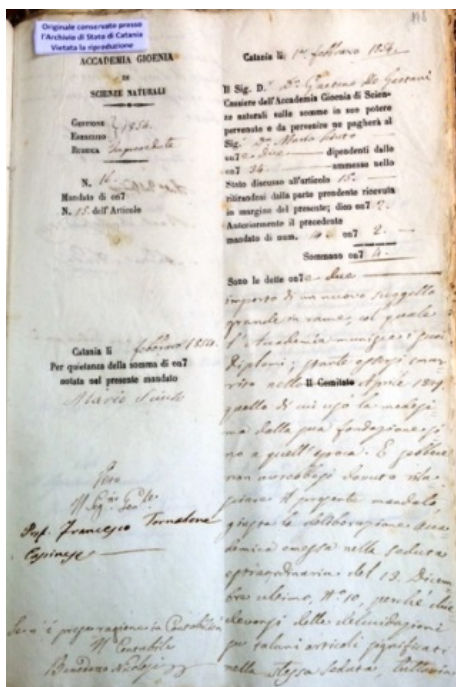 Originale conservato presso
l'Archivio di Stato di Catania
Vietata la riproduzione
ACCADEMIA GIOENIA
DI
SCIENZE NATURALI
Gestione
Esercizio 1854.
Rubrica Imprevedute
N.
Mandato di on7
N. 15. dell'Articolo
Catania li febbraro 1854.
Per quietanza della somma di on7
notata nel presente mandato
Mario
Il Seg. Gen.
Prof. Francesco Tornabene
Cassinese
Il Contabile
Catania li febbraro 1854.
Il Sig. D. Dr. Gaetano de Gaetani
Cassiere dell'Accademia Gioenia di Scien-
ze naturali sulle somme in suo potere
pervenute e da pervenire ne pagherà al
Sig. D. Mario
on7 due dipendenti dalle
on7 34 ammesse nello
Stato discusso all'articolo 15
ritirandosi dalla parte prendente ricevuta
in margine del presente; dico on7 2.
Anteriormente il precedente
mandato di num. on7 2.
Sommano on7 4.
Sono le dette on7 due
importo di un nuovo suggello
grande in rame, col quale
l'Accademia munisce i suoi
Diplomi;
Il Comitato Aprile 1849
quello di cui usò la medesi
ma dalla sua fondazione si
no a quell'epoca. E sebbene
non avrebbesi dovuto rila
sciare il presente mandato
giusta la deliberazione Acca
demica emessa nella seduta
straordinaria del 13. Dicem
bre ultimo, N° 10, perchè chie
devansi delle delucidazioni
per taluni articoli significati
nella stessa seduta, tuttavia